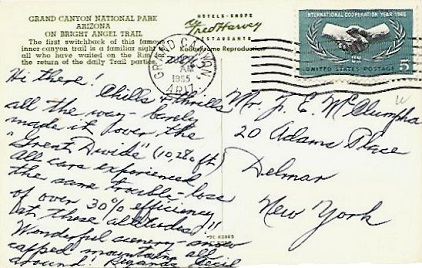 GRAND CANYON NATIONAL PARK
ARIZONA
ON BRIGHT ANGEL TRAIL
The first switchback of this famous
inner canyon trail is a familiar sight to
all who have waited on the Rim for
the return of the daily Trail parties.
HOTELS · SHOPS
Fred Harvey
RESTAURANTS
Kodachrome Reproduction
GRAND CANYON
AM
1965
ARIZ.
INTERNATIONAL COOPERATION YEAR 1965
UNITED STATES POSTAGE 5
Hi there! Chills & thrills
all the way - barely
made it over the
"Great Divide" (10,280 ft)
All cars experienced
the same trouble - loss
of over 30% efficiency
at those altitudes!!
Wonderful scenery - snow
capped mountains all
around! Regards Cecil
Mr. J. E. McClumpha
20 Adams Place
Delmar
New York